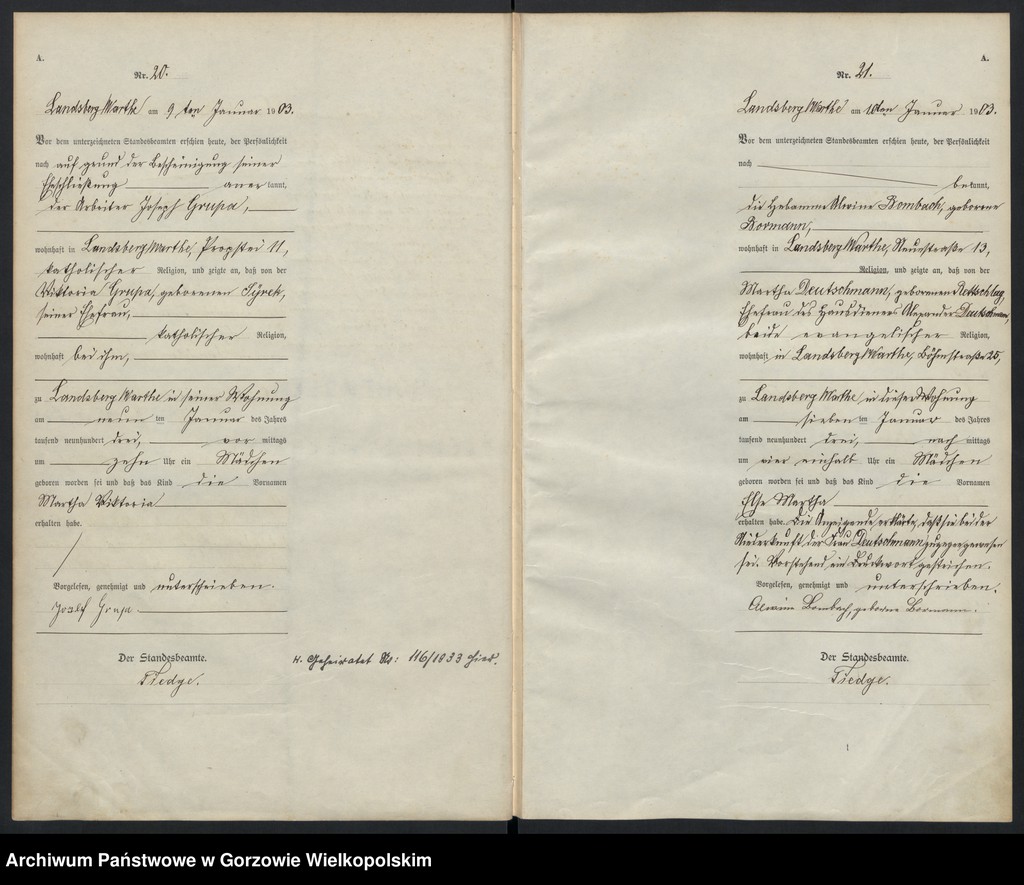 A.
Nr. 20.
Landsberg Warthe am 9 ten Januar 1903.
Vor dem unterzeichneten Standesbeamten erschien heute, der Persönlichkeit
nach auf grund der Bescheinigung seiner
Eheschließung anerkannt,
der Arbeiter Joseph Grupa,
wohnhaft in Landsberg Warthe, Propstei 11,
katholischer Religion, und zeigte an, daß von der
Viktoria Grupa, geborenen Tyrek,
seiner Ehefrau,
katholischer Religion,
wohnhaft bei ihm,
zu Landsberg Warthe in seiner Wohnung
am neun ten Januar des Jahres
tausend neunhundert drei, vor mittags
um zehn Uhr ein Mädchen
geboren worden sei und daß das Kind die Vornamen
Martha Viktoria
erhalten habe.
Vorgelesen, genehmigt und unterschrieben.
Josef Grupa
Der Standesbeamte.
Tiedge.
H. Geheiratet Nr: 116/1933 hier.
A.
Nr. 21.
Landsberg Warthe am 10ten Januar 1903.
Vor dem unterzeichneten Standesbeamten erschien heute, der Persönlichkeit
nach
bekannt,
die Hebamme Alwine Bombach, geborene
Bormann,
wohnhaft in Landsberg Warthe, Neuestraße 13,
Religion, und zeigte an, daß von der
Martha Deutschmann, geborenen Rettschlag,
Ehefrau des Hausdieners Alexander Deutschmann,
beide evangelischer Religion,
wohnhaft in Landsberg Warthe, Böhmstraße 25,
zu Landsberg Warthe in dieser Wohnung
am sieben ten Januar des Jahres
tausend neunhundert drei, nach mittags
um vier einhalb Uhr ein Mädchen
geboren worden sei und daß das Kind die Vornamen
Else Martha
erhalten habe. Die Anzeigende erklärte, daß sie bei der
Niederkunft der Frau Deutschmann zugegen gewesen
sei. Vorstehend ein Druckwort gestrichen.
Vorgelesen, genehmigt und unterschrieben.
Alwine Bombach, geborne Bormann.
Der Standesbeamte.
Tiedge.
Archiwum Państwowe w Gorzowie Wielkopolskim